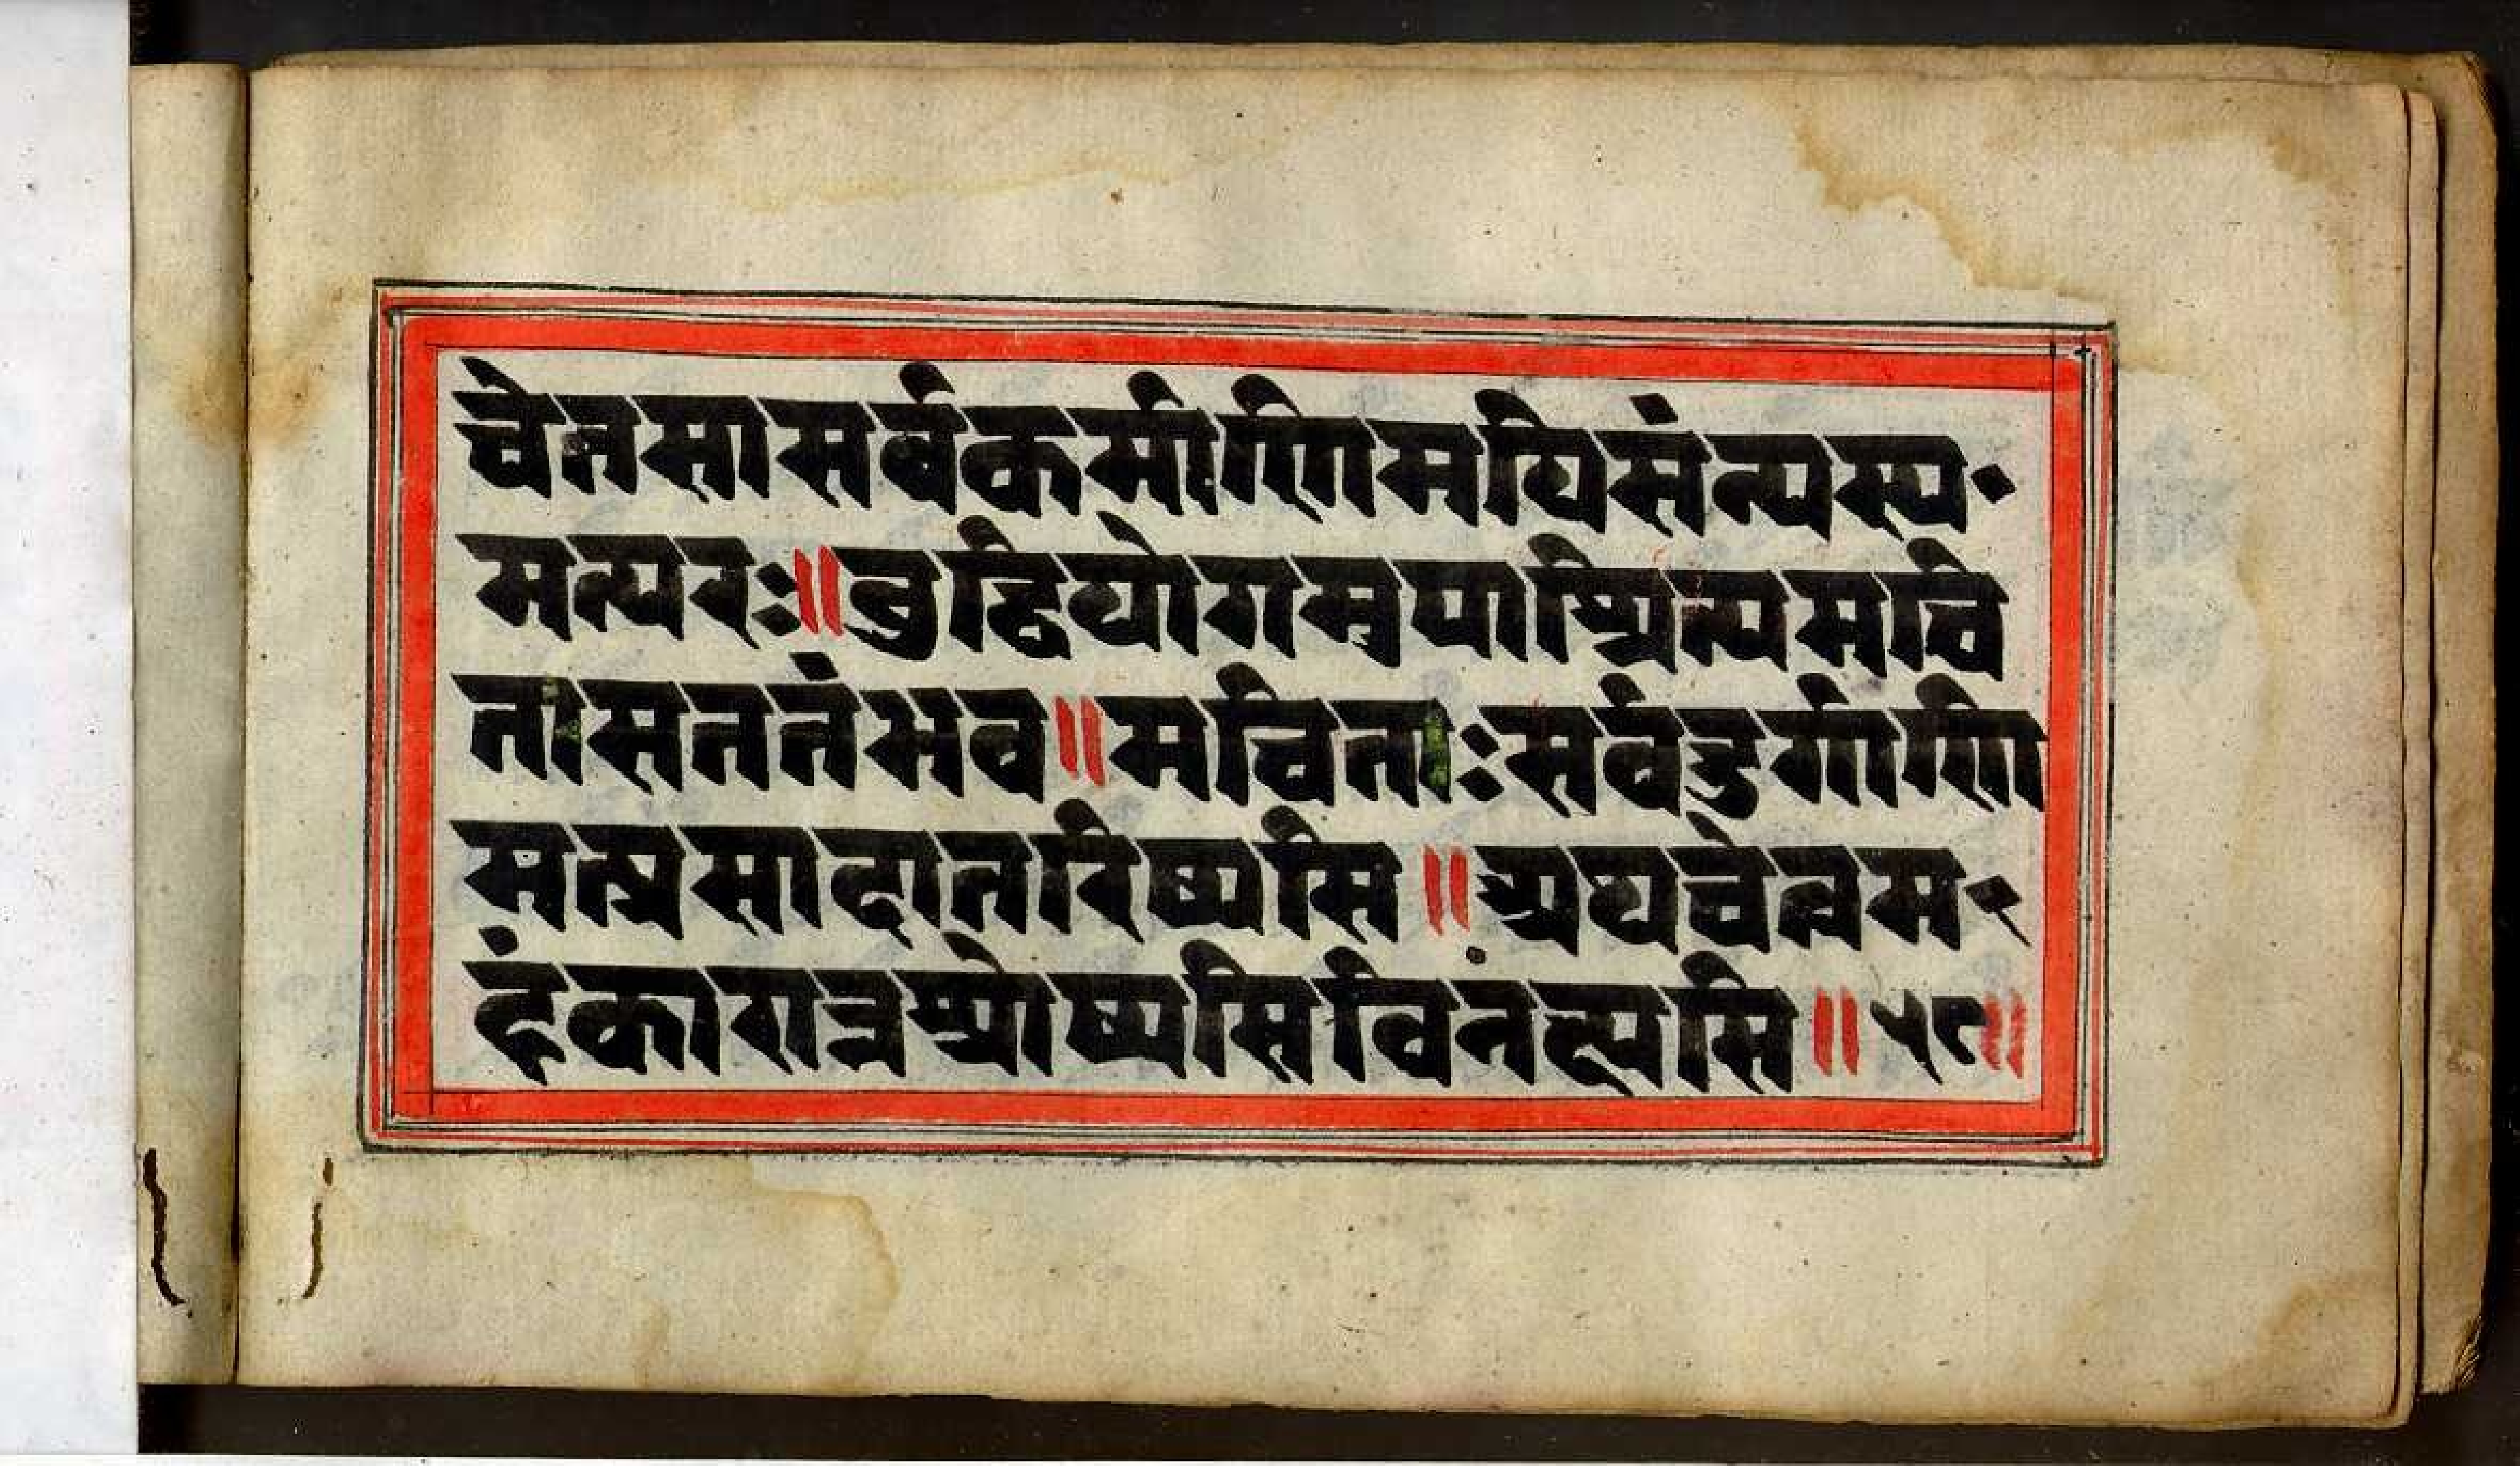 चेतसासर्वकर्माणिमयिसंन्यस्य·
मत्परः॥बुद्धियोगमुपाश्रित्यमचि
त्तासततंभव॥मचित्ताःसर्वदुर्गाणि
मत्प्रसादात्तरिष्यसि॥अथचेत्त्वम·
हंकारान्नश्रोष्यसिविनंक्ष्यसि॥५८॥